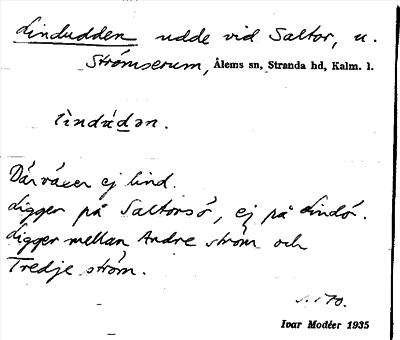 Lindudden udde vid Saltor, u.
Strömserum, Ålems sn, Stranda hd, Kalm. l.
lìndúdən.
Där växer ej lind.
Ligger på Saltorsö, ej på Lindö.
Ligger mellan Andre ström och
Tredje ström.
s. 170.
Ivar Modéer 1935